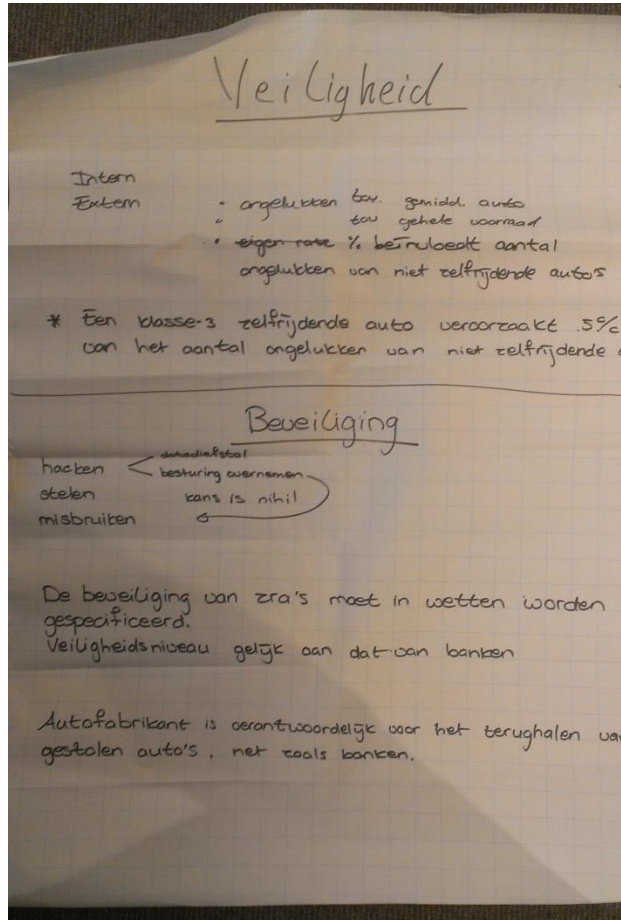 Veiligheid
Intern
Extern
• ongelukken tov. gemidd. auto
" tov gehele voorraad
• eigen rate % beïnvloedt aantal
ongelukken van niet zelfrijdende auto's
* Een klasse-3 zelfrijdende auto veroorzaakt .5%
van het aantal ongelukken van niet zelfrijdende
Beveiliging
datadiefstal
hacken < besturing overnemen
stelen kans is nihil
misbruiken
De beveiliging van zra's moet in wetten worden
gespecificeerd.
Veiligheidsniveau gelijk aan dat van banken
Autofabrikant is verantwoordelijk voor het terughalen va
gestolen auto's, net zoals banken.